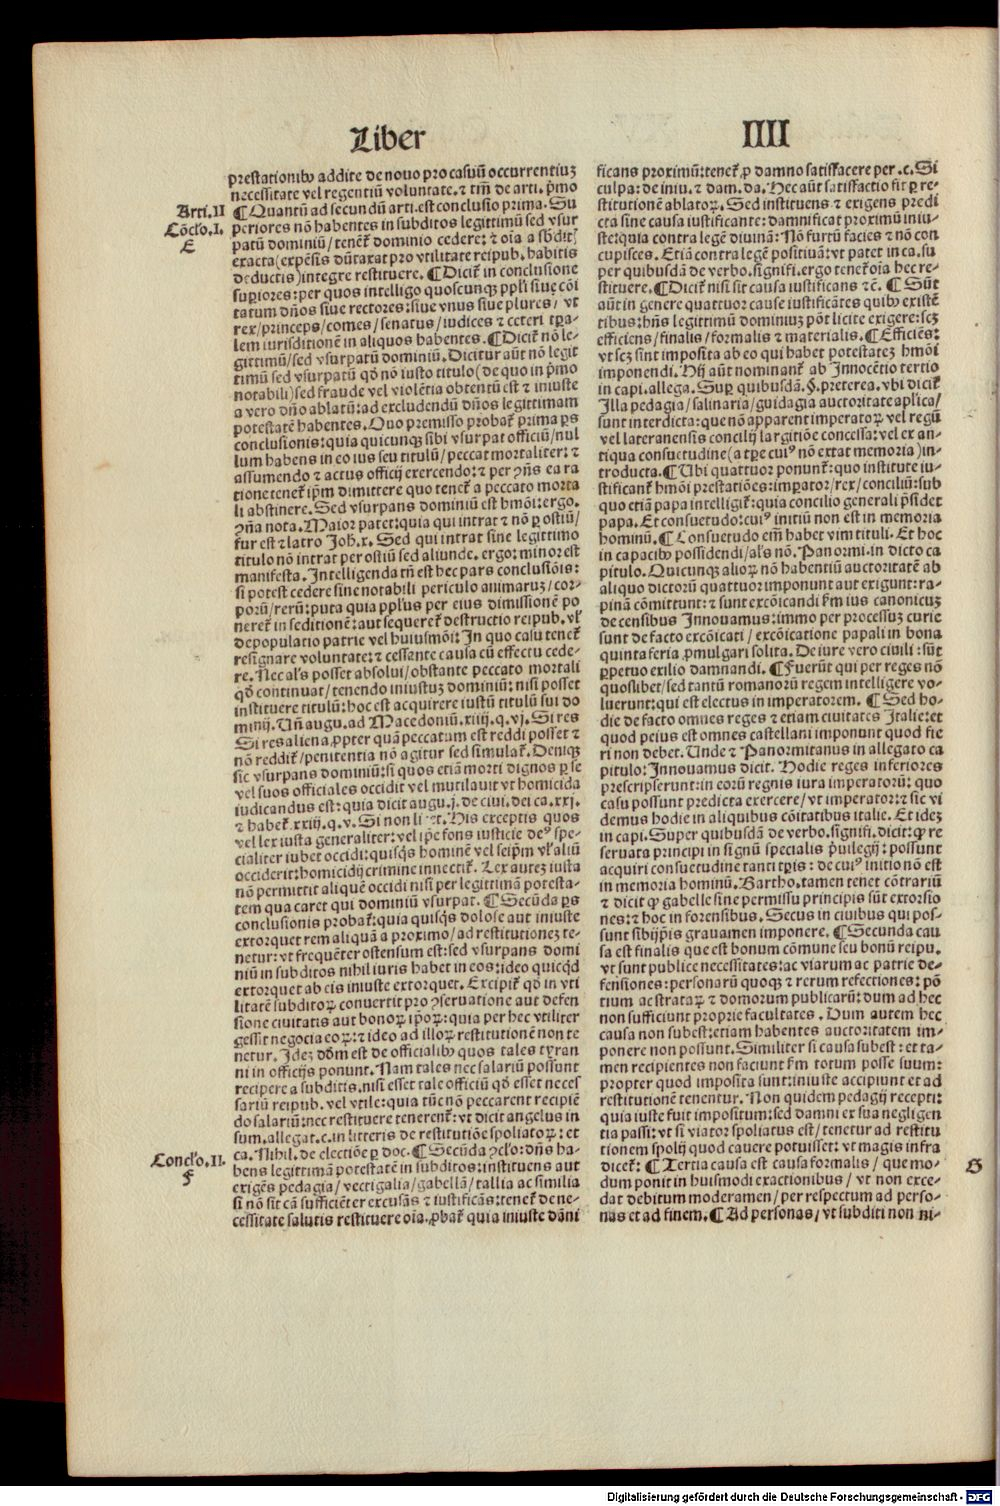 Liber
IIII
prestationibꝰ addite de nouo pro casuū occurrentiuꝫ
necessitate vel regentiū voluntate. ⁊ tm̄ de arti. pͥmo
Arti. II
¶ Quantū ad secundū arti. est conclusio prima. Su
Cōclo. I.
periores nō habentes in subditos legittimū sed vsur
E
patū dominiū / tenent̄ dominio cedere: ⁊ oīa a sbditꝭ
exacta (expēsis dūtaxat pro vtilitate reipub. habitis
deductis) integre restituere. ¶ Dicit̄ in conclusione
supiores: per quos intelligo quoscunqꝫ ppli siue cōi
tatum dn̄os siue rectores: siue vnus siue plures / vt
rex / princeps / comes / senatus / iudices ⁊ ceteri tpa⸗
lem iurisditionē in aliquos habentes. ¶ Dicit̄ nō le⸗
gittimū / sed vsurpatū dominiū. Dicitur aūt nō legit
timū sed vsurpatū qd̄ nō iusto titulo (de quo in pͥmo
notabili) sed fraude vel violētia obtentū est ⁊ iniuste
a vero dn̄o ablatū: ad excludendū dn̄os legittimam
potestatē habentes. Quo premisso probat̄ prima ps
conclusionis: quia quicunqꝫ sibi vsurpat officiū / nul
lum habens in eo ius seu titulū / peccat mortaliter: ⁊
assumendo ⁊ actus officij exercendo: ⁊ per ꝯn̄s ea ra
tione tenet̄ ip̄m dimittere quo tenet̄ a peccato morta
li abstinere. Sed vsurpans dominiū est hmōi: ergo.
ꝯn̄a nota. Maior patet: quia qui intrat ⁊ nō ꝑ ostiū /
fur est ⁊ latro Joh. x. Sed qui intrat sine legittimo
titulo nō intrat per ostiū sed aliunde. ergo: minor est
manifesta. Intelligenda tn̄ est hec pars conclusiōis:
si potest cedere sine notabili periculo animaruꝫ / cor⸗
porū / rerū: puta quia pplus per eius dimissionē po
neret̄ in seditionē: aut sequeret̄ destructio reipub. vl̓
depopulatio patrie vel huiusmōi: In quo casu tenet̄
resignare voluntate: ⁊ cessante causa cū effectu cede⸗
re. Nec al̓s posset absolui / obstante peccato mortali
qd̄ continuat / tenendo iniustuꝫ dominiū: nisi posset
instituere titulū: hoc est acquirere iustū titulū sui do
minij. Vn̄ augu. ad Macedoniū. xiiij. q. vj. Si res
Si res aliena ꝓpter quā peccatum est reddi posset ⁊
nō reddit̄ / penitentia nō agitur sed simulat̄. Deniqꝫ
sic vsurpans dominiū: si quos etiā morti dignos ꝑ se
vel suos officiales occidit vel mutilauit vt homicida
iudicandus est: quia dicit augu. j. de ciui. dei ca. xxj.
⁊ habet̄ xxiij. q. v. Si non licet. His exceptis quos
vel lex iusta generaliter: vel ip̄e fons iusticie deꝰ spe⸗
cialiter iubet occidi: quisqͥs hominē vel seip̄m vl̓ aliū
occiderit: homicidij crimine innectit̄. Lex autez iusta
nō permittit aliquē occidi nisi per legittimā potesta⸗
tem qua caret qui dominiū vsurpat. ¶ Secūda ps
conclusionis probat̄: quia quisqͥs dolose aut iniuste
extorquet rem aliquā a proximo / ad restitutionez te⸗
netur: vt frequēter ostensum est: sed vsurpans domi
niū in subditos nihil iuris habet in eos: ideo quicqͥd
extorquet ab eis iniuste extorquet. Excipit̄ qd̄ in vti
litatē subditoꝝ conuertit pro ꝯseruatione aut defen
sione ciuitatis aut bonoꝝ ip̄oꝝ: quia per hec vtiliter
gessit negocia eoꝝ: ⁊ ideo ad illoꝝ restitutionē non te
netur. Idez dd̄m est de officialibꝰ quos tales tyran
ni in officijs ponunt. Nam tales nec salariū possunt
recipere a subditis. nisi esset tale officiū qd̄ esset neces
sariū reipub. vel vtile: quia tūc nō peccarent recipiē
do salariū: nec restituere tenerent̄: vt dicit angelus in
sum. allegat. c. in litteris de restitutiōe spoliatoꝝ: et
ca. Nihil. de electiōe ꝑ doc. ¶ Secūda ꝯclo: dn̄s ha⸗
Conclo. II.
bens legittimā potestatē in subditos: instituens aut
F
exigēs pedagia / vectigalia / gabellā / tallia ac similia
si nō sit cā sufficiēter excusās ⁊ iustificās: tenet̄ de ne⸗
cessitate salutis restituere oīa. ꝓbat̄ quia iniuste dāni
ficans proximū: tenet̄ ꝓ damno satisfacere per. c. Si
culpa: de iniu. ⁊ dam. da. Hec aūt satisfactio fit ꝑ re⸗
stitutionē ablatoꝝ. Sed instituens ⁊ exigens predi
cta sine causa iustificante: damnificat proximū iniu⸗
ste: quia contra legē diuinā: Nō furtū facies ⁊ nō con
cupisces. Etiā contra legē positiuā: vt patet in ca. su
per quibusdā de verbo. signifi. ergo tenet̄ oīa hec re⸗
stituere. ¶ Dicit̄ nisi sit causa iustificans ⁊c̄. ¶ Sūt
aūt in genere quattuor cause iustificātes quibꝰ existē
tibus: hn̄s legittimū dominiuꝫ pōt licite exigere: scꝫ
efficiens / finalis / formalis ⁊ materialis. ¶ Efficiēs:
vt scꝫ sint imposita ab eo qui habet potestatez hmōi
imponendi. Hij aūt nominant̄ ab Innocētio tertio
in capi. allega. Suꝑ quibusdā. §. preterea. vbi dicit̄
Illa pedagia / salinaria / guidagia auctoritate aplica /
sunt interdicta: que nō apparent imperatoꝝ vel regū
vel lateranensis concilij largitiōe concessa: vel ex an⸗
tiqua consuetudine (a tpe cuiꝰ nō extat memoria) in⸗
troducta. ¶ Ubi quattuor ponunt̄: quo institute iu⸗
stificant̄ hmōi prestatiōes: imperator / rex / conciliū: sub
quo etiā papa intelligit̄: quia concilio generali p̄sidet
papa. Et consuetudo: cuiꝰ initiū non est in memoria
hominū. ¶ Consuetudo em̄ habet vim tituli. Et hoc
in capacibꝰ possidendi / al̓s nō. Panormi. in dicto ca
pitulo. Quicunqꝫ alioꝝ nō habentiū auctoritatē ab
aliquo dictorū quattuor imponunt aut exigunt: ra⸗
pinā cōmittunt: ⁊ sunt excōicandi fm̄ ius canonicuꝫ
de censibus Innouamus: immo per processuꝫ curie
sunt de facto excōicati / excōicatione papali in bona
quinta feria ꝓmulgari solita. De iure vero ciuili: sūt
ꝑpetuo exilio damnandi. ¶ Fuerūt qui per reges nō
quoslibet / sed tantū romanorū regem intelligere vo⸗
luerunt: qui est electus in imperatorem. ¶ Sed ho⸗
die de facto omnes reges ⁊ etiam ciuitates Italie: et
quod peius est omnes castellani imponunt quod fie
ri non debet. Unde ⁊ Panormitanus in allegato ca
pitulo: Innouamus dicit. Hodie reges inferiores
prescripserunt: in eorū regnis iura imperatorū: quo
casu possunt predicta exercere / vt imperator: ⁊ sic vi
demus hodie in aliquibus cōitatibus italie. Et idez
in capi. Super quibusdā de verbo. signifi. dicit: ꝙ re
seruata principi in signū specialis pͥuilegij: possunt
acquiri consuetudine tanti tpis: de cuiꝰ initio nō est
in memoria hominū. Bartho. tamen tenet cōtrariū
⁊ dicit ꝙ gabelle sine permissu principis sūt extorsio
nes: ⁊ hoc in forensibus. Secus in ciuibus qui pos⸗
sunt sibijpis grauamen imponere. ¶ Secunda cau
sa est finalis que est bonum cōmune seu bonū reipu.
vt sunt publice necessitates: ac viarum ac patrie de⸗
fensiones: personarū quoqꝫ ⁊ rerum refectiones: pō
tium ac strataꝝ ⁊ domorum publicarū: dum ad hec
non sufficiunt proprie facultates. Dum autem hec
causa non subest: etiam habentes auctoritatem im⸗
ponere non possunt. Similiter si causa subest: et ta⸗
men recipientes non faciunt fm̄ totum posse suum:
propter quod imposita sunt: iniuste accipiunt et ad
restitutionē tenentur. Non quidem pedagij recepti:
quia iuste fuit impositum: sed damni ex sua negligen
tia passi: vt si viator spoliatus est / tenetur ad restitu
tionem spolij quod cauere potuisset: vt magis infra
dicet̄: ¶ Tertia causa est causa formalis / que mo⸗
G
dum ponit in huiusmodi exactionibus / vt non exce⸗
dat debitum moderamen / per respectum ad perso⸗
nas et ad finem. ¶ Ad personas / vt subditi non ni⸗
Digitalisierung gefördert durch die Deutsche Forschungsgemeinschaft - DFG